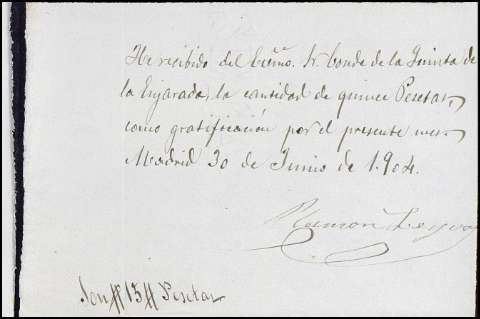 He recibido del Excmo. Sr Conde de la Quinta de
la Enjarada, la cantidad de quince Pesetas,
como gratificación por el presente mes.
Madrid 30 de Junio de 1.904.
Ramon
Son #15# Pesetas